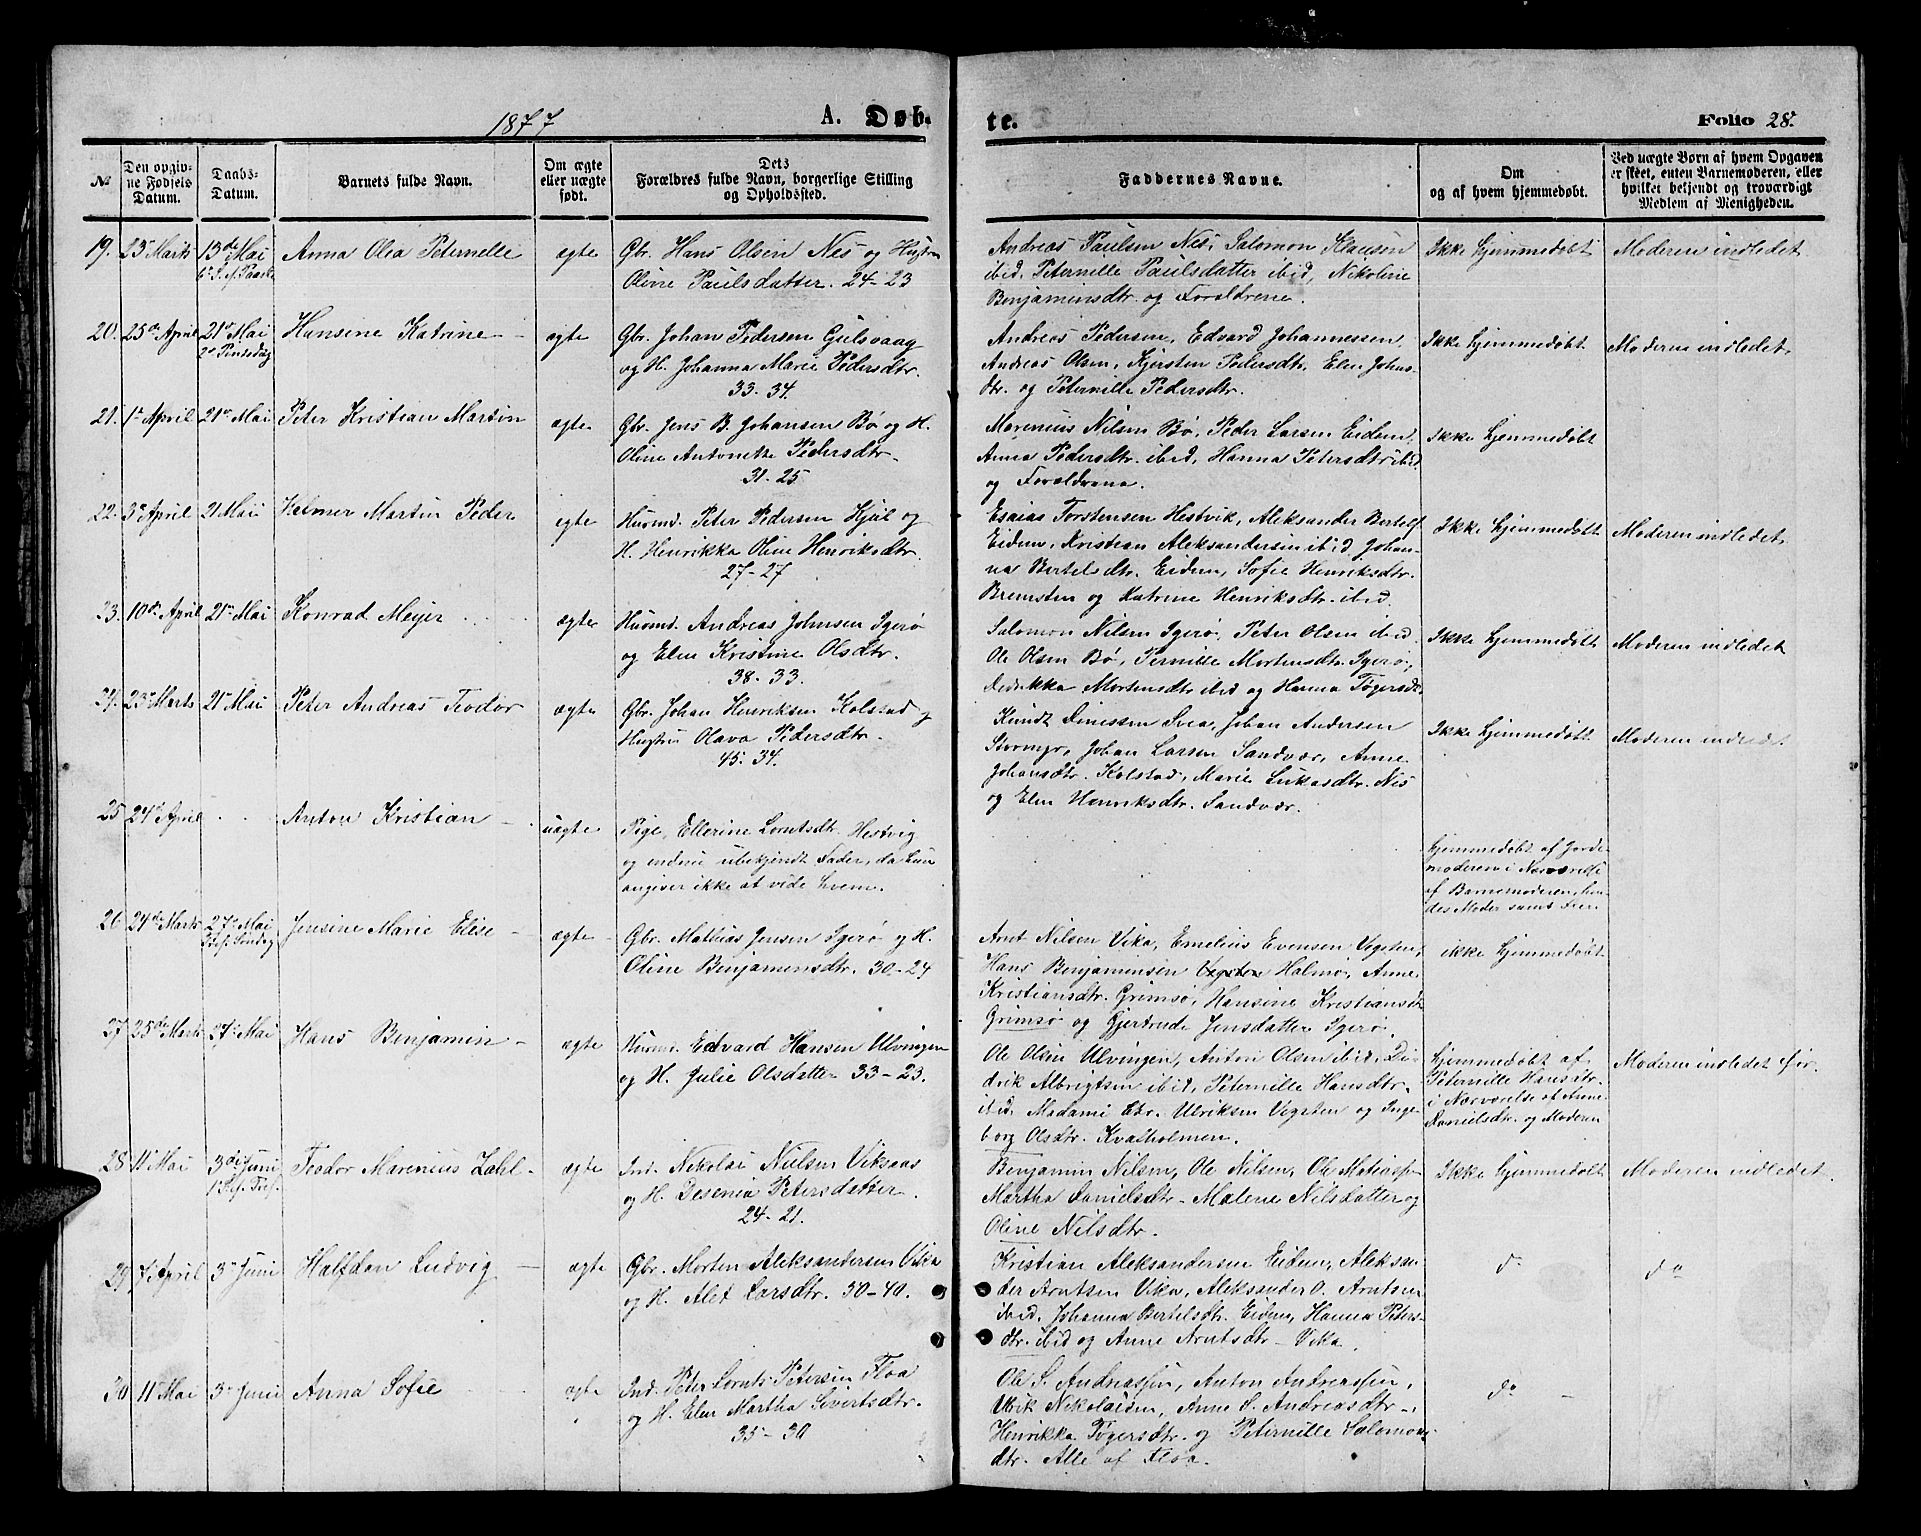 1877
A. Døb-
te.
Folio 28.
№
Den opgiv-
ne Fødsels
Datum.
Daabs-
Datum.
Barnets fulde Navn.
Om ægte
eller uægte
født.
Dets
Forældres fulde Navn, borgerlige Stilling
og Opholdssted.
Faddernes Navne.
Om
og af hvem hjemmedøbt.
Ved uægte Børn af hvem Opgaven
er skeet, enten Barnemoderen, eller
hvilket bekjendt og troværdigt
Medlem af Menigheden.
19. 23de Marts 13de Mai
6te S. f. Paaske
Anna Olea Peternelle
ægte
Gbr. Hans Olsen Nes og Hustru
Oline Paulsdatter. 24-23
Andreas Paulsen Nes, Salomon Klausen
ibid, Peternille Paulsdatter ibid, Nikoline
Benjaminsdtr. og Forældrene.
Ikke hjemmedøbt
Moderen indledet.
20. 25de April 21de Mai
2de Pinsedag
Hansine Katrine
ægte
Gbr. Johan Pedersen Gulsvaag
og H. Johanna Marie Pedersdtr.
33. 34.
Andreas Pedersen, Edvard Johannessen,
Andreas Olsen, Kjersten Pedersdtr, Elen Johns-
dtr. og Peternille Pedersdtr.
Ikke hjemmedøbt
Moderen indledet.
21. 1te April 21de Mai
Peter Kristian Martin
ægte
Gbr. Jens B. Johansen Bø og H.
Oline Antonette Pedersdtr.
31. 25
Marenius Nilsen Bø, Peder Larsen Eidem,
Anna Pedersdtr. ibid, Hanna Petersdtr ibid
og Forældrene.
Ikke hjemmedøbt
22. 3die April 21 Mai
Helmer Martin Peder
ægte
Husmd. Peter Pedersen Hjul og
H. Henrikka Oline Henriksdtr.
27-27
Esaias Torstensen Hestvik, Aleksander Bertels.
Eidem, Kristian Aleksandersen ibid, Johan-
na Bertelsdtr. Eidem, Sofie Henriksdtr.
Bremsten og Katrine Henriksdtr. ibid.
Ikke hjemmedøbt
Moderen indledet.
23. 10de April 21de Mai
Konrad Meyer
ægte
Husmd. Andreas Johnsen Igerø
og Elen Kristine Olsdtr.
38-33.
Salomon Nilsen Igerø, Peter Olsen ibid.
Ole Olsen Bø, Pernille Mortensdtr. Igerø,
Didrikka Mortensdtr ibid og Hanna Tøgersdtr.
Ikke hjemmedøbt
Moderen indledet
24. 23de Marts 21de Mai
Peter Andreas Teodor
ægte
Gbr. Johan Henriksen Kolstad og
Hustru Olava Pedersdtr.
45. 34.
Knudt Dinessen Svea, Johan Andersen
Stormyr, Johan Larsen Sandvær, Anne
Johansdtr. Kolstad, Marie Lukasdtr. Nes
og Elen Henriksdtr. Sandvær.
Ikke hjemmedøbt
Moderen indledet.
25 24de April
Anton Kristian
uægte
Pige, Ellerine Lorntsdtr. Hestvig
og endnu ubekjendt Fader, da hun
angiver ikke at vide hvem.
hjemmedøbt af Jorde-
moderen i Nærværelse
af Barnemoderen, hen-
des Moder samt
26 24de Marts 27de Mai
Trf. Søndag
Jensine Marie Elise
ægte
Gbr. Mathias Jensen Igerø og H.
Oline Benjaminsdtr. 30-24
Arnt Nilsen Vika, Emelius Evensen Vegsten,
Hans Benjaminsen Vegsten Halmø, Anne
Kristiansdtr. Grimsø, Hansine Kristiansdtr
Grimsø og Gjertrude Jensdatter Igerø.
ikke hjemmedøbt
27 25de Marts 27de Mai
Hans Benjamin
ægte
Husmd. Edvard Hansen Ulvingen
og H. Julie Olsdatter 33-23.
Ole Olsen Ulvingen, Anton Olsen ibid, Di-
drik Albrigtsen ibid, Peternille Hansdtr.
ibid. Madame Chr. Ulriksen Vegsten og Inge-
borg Olsdtr. Kvalholmen.
hjemmedøbt af
Peternille Hansdtr.
i Nærværelse af Anne
Danielsdtr. og Moderen
Moderen indledet før.
28 11te Mai 3die Juni
1 S. f. Tref.
Teodor Marenius Zahl
ægte
Ind. Nikolai Nielsen Viksaas
og H. Desenia Petersdatter.
24-21.
Benjamin Nilsen, Ole Nilsen, Ole Matiassen
Martha Danielsdtr. Malene Nilsdatter og
Oline Nilsdtr.
Ikke hjemmedøbt
Moderen indledet.
29 7 April 3die Juni
Halfdan Ludvig
ægte
Gbr. Morten Aleksandersen Vika
og H. Alet Larsdtr. 30-40.
Kristian Aleksandersen Eidem, Aleksan-
der Arntsen Vika, Aleksander O. Arntsen
ibid, Johanna Bertelsdtr. Eidem, Hanna Peters-
dtr. ibid og Anne Arntsdtr Vika.
do
do
30 11te Mai 3die Juni
Anna Sofie
ægte
Ind. Peter Lornts Petersen Floa
og H. Elen Martha Sivertsdtr.
35-30
Ole S. Andreassen, Anton Andreassen,
Ulrik Nikolaisen, Anne S. Andreasdtr.,
Henrikka Tøgersdtr. og Peternille Salomons-
dtr. Alle af Floa.
do